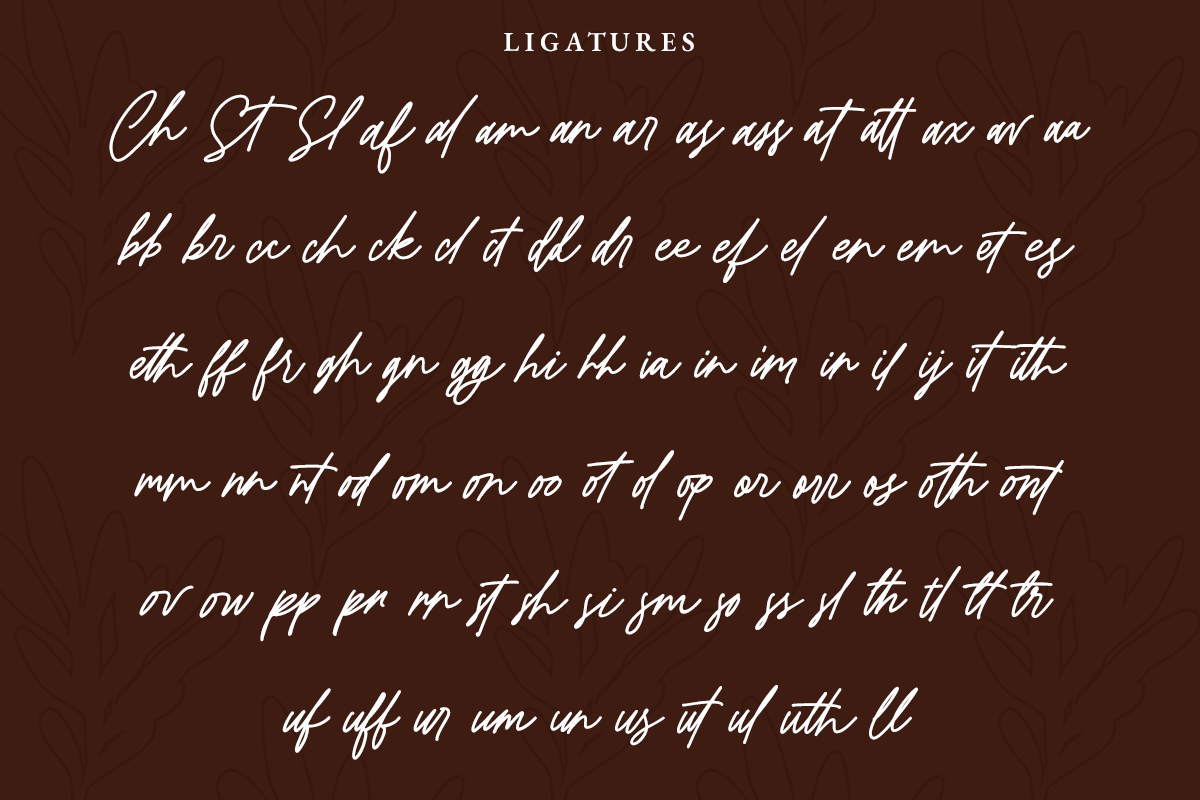 LIGATURES
Ch ST Sl af al am an ar as ass at att ax av aa
bb br cc ch ck cl ct dd dr ee ef el en em et es
eth ff fr gh gn gg hi hh ia in im ir il ij it ith
mm nn nt od om on oo ot ol op or orr os oth ont
ov ow pp pr rn st sh si sm so ss sl th tl tt tr
uf uff ur um un us ut ul uth ll